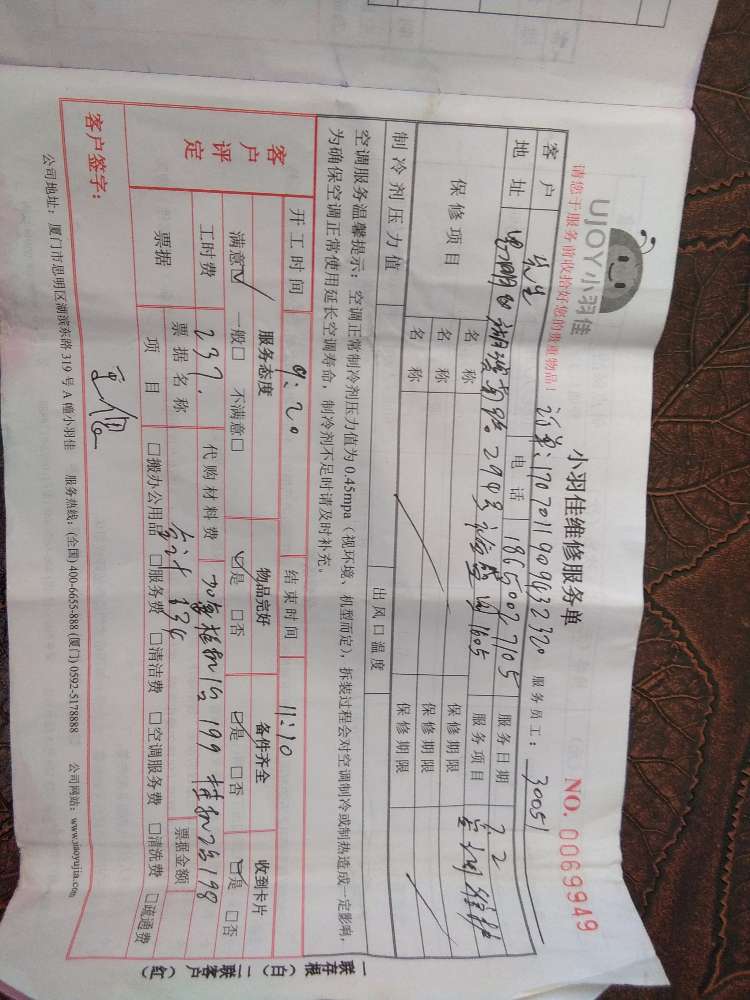 UJOY小羽佳
小羽佳维修服务单
请您于服务前收拾好您的贵重物品!
服务员工: 30051
NO. 0069949
客户 先生 电话 服务日期 7.2
地址 服务项目 空调维护
保修项目 名称 保修期限
名称 保修期限
名称 保修期限
制冷剂压力值 出风口温度
空调服务温馨提示: 空调正常制冷剂压力值为0.45mpa (视环境、机型而定), 拆装过程会对空调制冷或制热造成一定影响,
为确保空调正常使用延长空调寿命, 制冷剂不足时请及时补充。
开工时间 9:20 结束时间 11:10
客户评定 服务态度 物品完好 备件齐全 收到卡片
满意☑ 一般□ 不满意□ ☑是 □否 ☑是 □否 ☑是 □否
工时费 237. 代购材料费 199 198
票据 票据名称 合计 票据金额
项目 □搬办公用品 □服务费 □清洁费 □空调服务费 □清洗费 □疏通费
客户签字:
公司地址: 厦门市思明区湖滨东路319号A幢小羽佳 服务热线: (全国) 400-6655-888 (厦门) 0592-5178888 公司网站: www.xiaoyujia.com
一联存根(白) 二联客户(红)